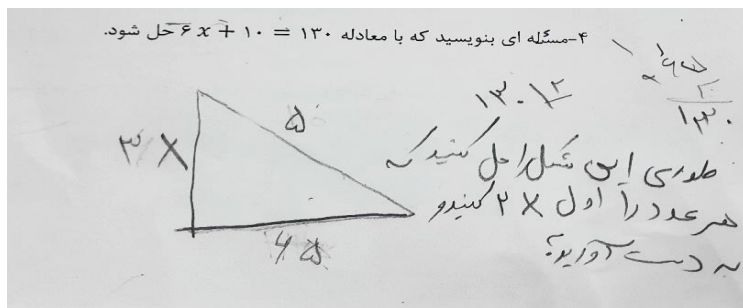 ۴-مسئله ای بنویسید که با معادله ۱۳۰ = ۱۰ + ۶x حل شود.
۶۵
۲
۱۳۰
۱۳۰ ۲
۳X
۵
۶۵
طوری این شکل را حل کنید که
هر عدد را اول ۲ X کنید و
به دست آورید؟